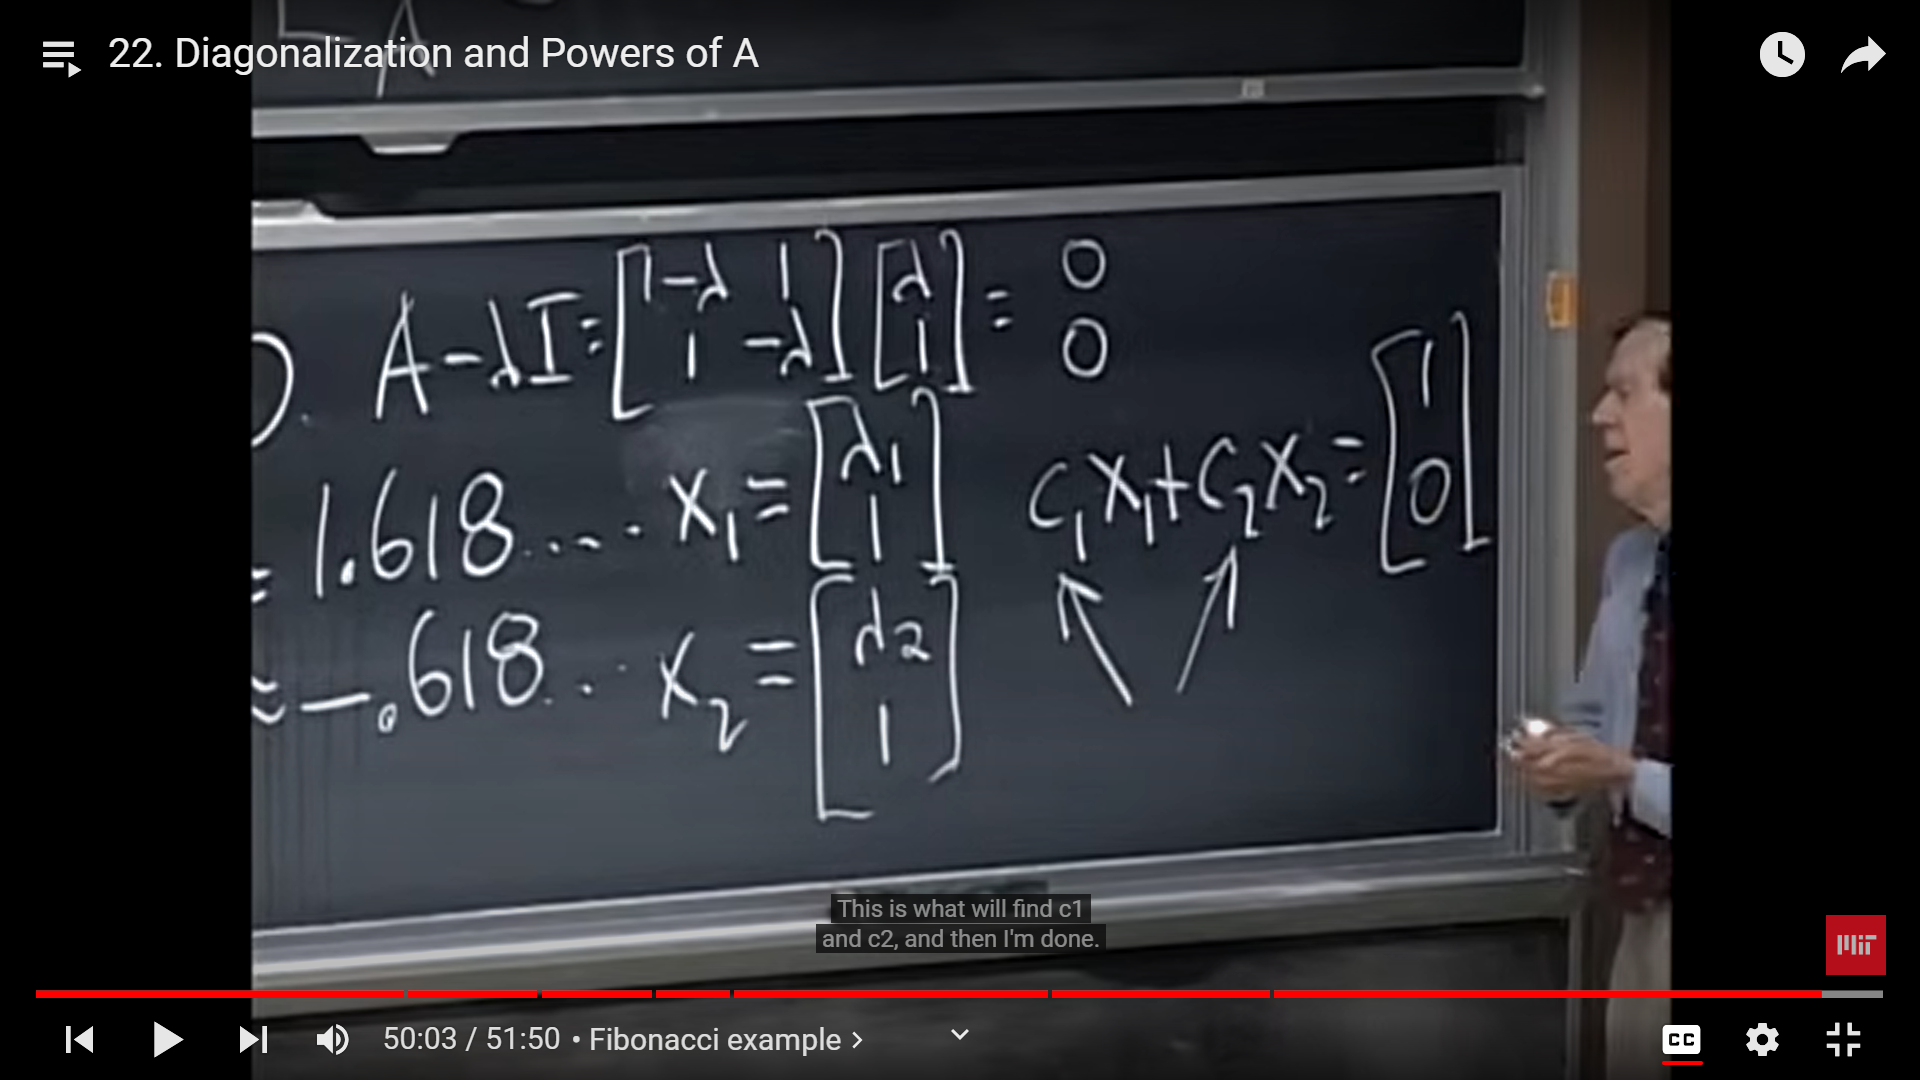 22. Diagonalization and Powers of A
A
A-λI=[1-λ 1][λ]= 0
[1 -λ][1] 0
= 1.618.... x₁=[λ₁]
[1]
c₁x₁+c₂x₂=[1]
[0]
≈-.618... x₂=[λ₂]
[1]
This is what will find c1
and c2, and then I'm done.
MIT
50:03 / 51:50 • Fibonacci example >
CC